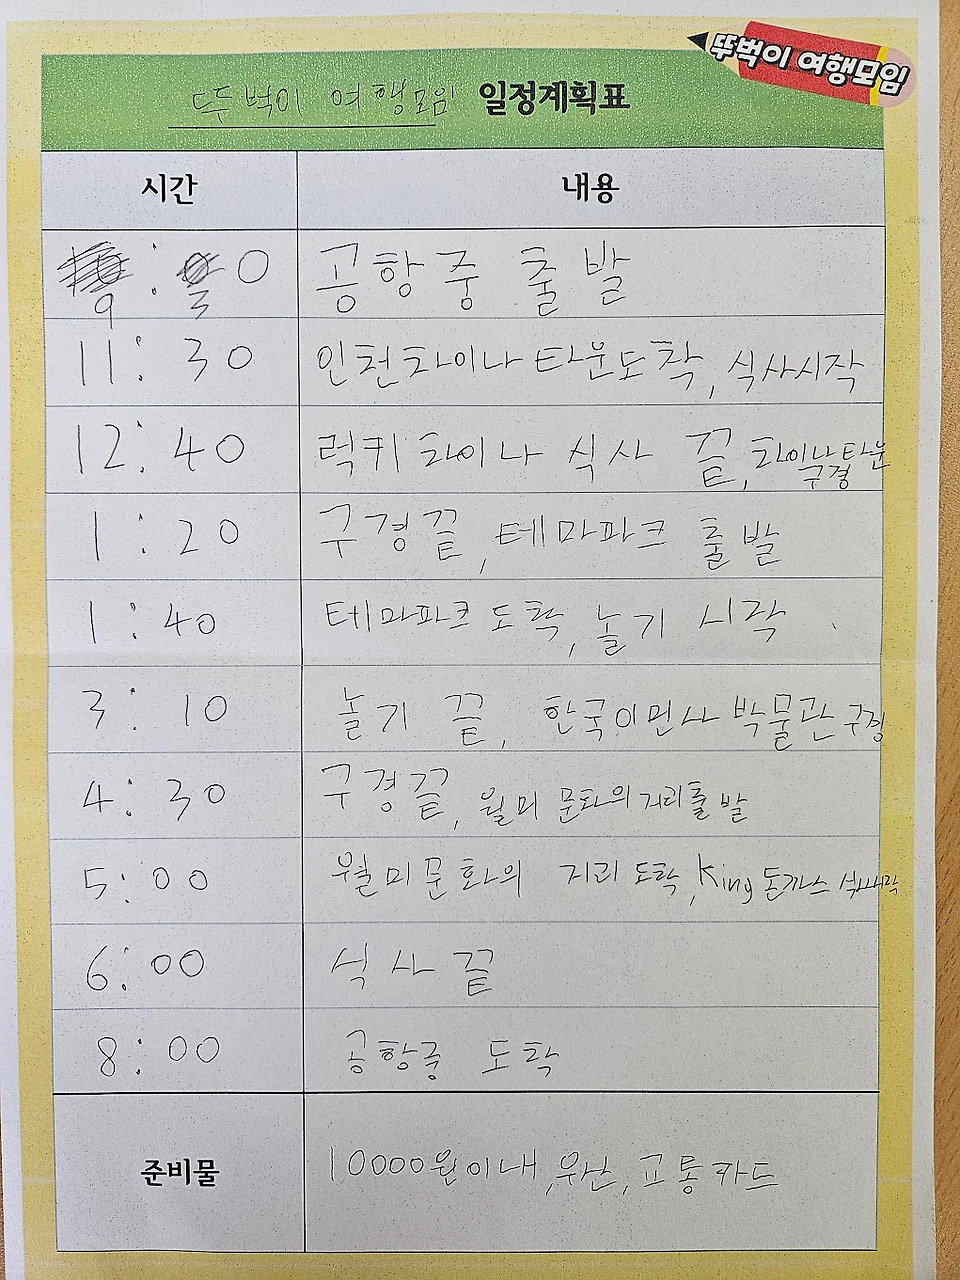 뚜벅이 여행모임
뚜벅이 여행모임 일정계획표
시간 내용
9:30 공항중 출발
11:30 인천차이나타운도착, 식사시작
12:40 럭키차이나 식사 끝, 차이나타운 구경
1:20 구경끝, 테마파크 출발
1:40 테마파크 도착, 놀기 시작
3:10 놀기 끝, 한국이민사 박물관 구경
4:30 구경끝, 월미 문화의거리출발
5:00 월미문화의 거리 도착, King돈까스 식사시작
6:00 식사끝
8:00 공항중 도착
준비물 10000원이내, 우산, 교통카드